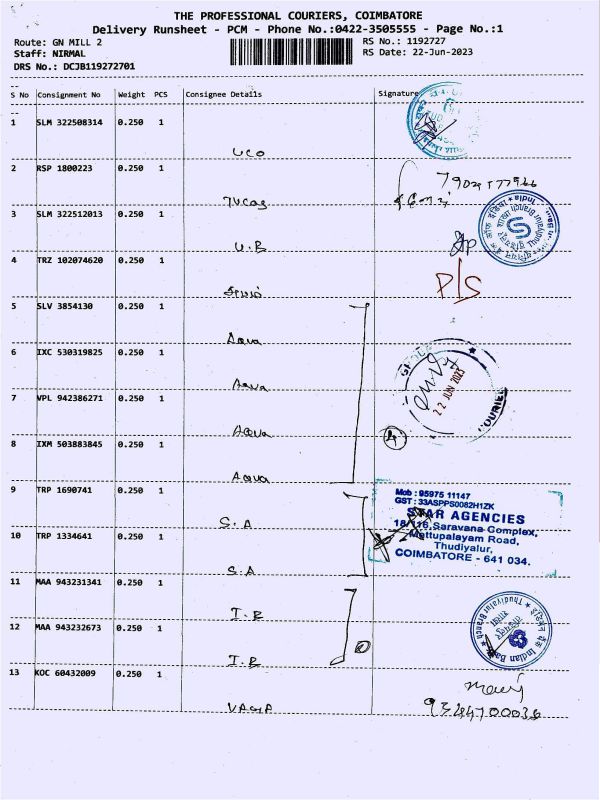 THE PROFESSIONAL COURIERS, COIMBATORE
Delivery Runsheet - PCM - Phone No.:0422-3505555 - Page No.:1
Route: GN MILL 2
RS No.: 1192727
Staff: NIRMAL
RS Date: 22-Jun-2023
DRS No.: DCJB119272701
S No Consignment No Weight PCS Consignee Details Signature
1 SLM 322508314 0.250 1
UCO
2 RSP 1800223 0.250 1
3 SLM 322512013 0.250 1
U.B
4 TRZ 102074620 0.250 1
P/S
5 SLV 3854130 0.250 1
Aqua
6 IXC 530319825 0.250 1
Aqua
7 VPL 942386271 0.250 1
22 JUN 2023
Aqua
8 IXM 503883845 0.250 1
4
Aqua
9 TRP 1690741 0.250 1
Mob : 95975 11147
GST : 33ASPPS0082H1ZK
S.A
STAR AGENCIES
10 TRP 1334641 0.250 1
18/116, Saravana Complex,
Mettupalayam Road,
Thudiyalur,
COIMBATORE - 641 034.
S.A
11 MAA 943231341 0.250 1
I.B
Thudiyalur Branch
Indian Bank
12 MAA 943232673 0.250 1
I.B
13 KOC 60432009 0.250 1